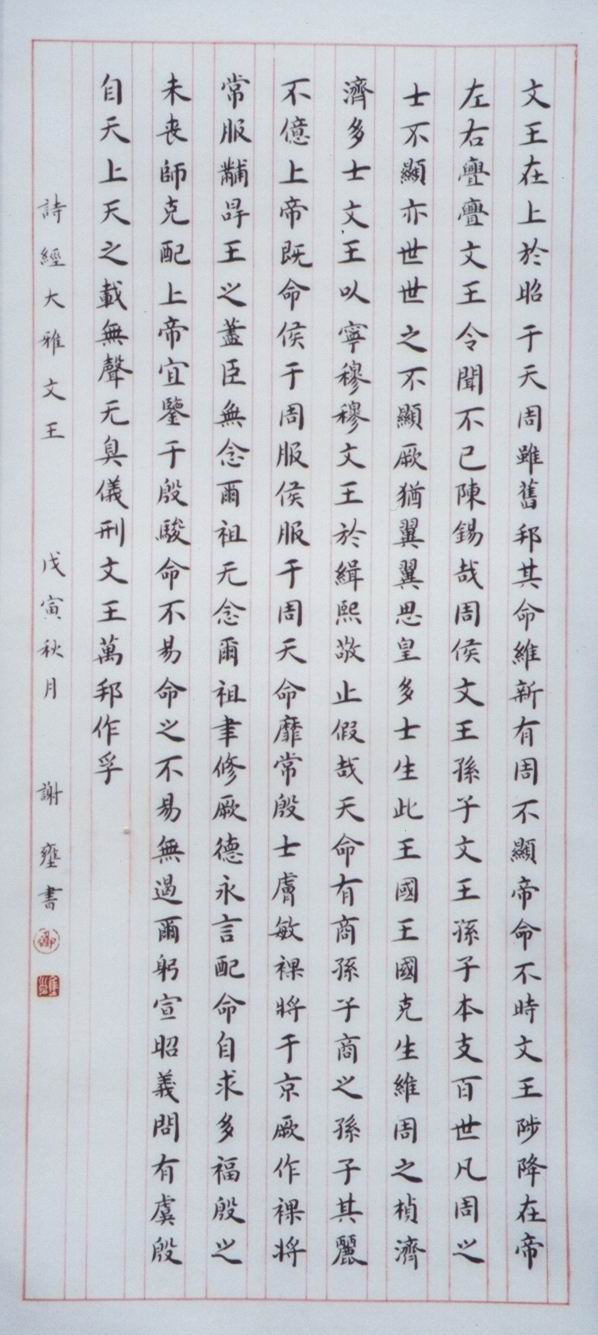 文王在上於昭于天周雖舊邦其命維新有周不顯帝命不時文王陟降在帝
左右亹亹文王令聞不已陳錫哉周侯文王孫子文王孫子本支百世凡周之
士不顯亦世世之不顯厥猶翼翼思皇多士生此王國王國克生維周之楨濟
濟多士文王以寧穆穆文王於緝熙敬止假哉天命有商孫子商之孫子其麗
不億上帝既命侯于周服侯服于周天命靡常殷士膚敏裸將于京厥作裸將
常服黼冔王之藎臣無念爾祖无念爾祖聿修厥德永言配命自求多福殷之
未喪師克配上帝宜鑒于殷駿命不易命之不易無遏爾躬宣昭義問有虞殷
自天上天之載無聲无臭儀刑文王萬邦作孚
詩經大雅文王 戊寅秋月 謝壅書